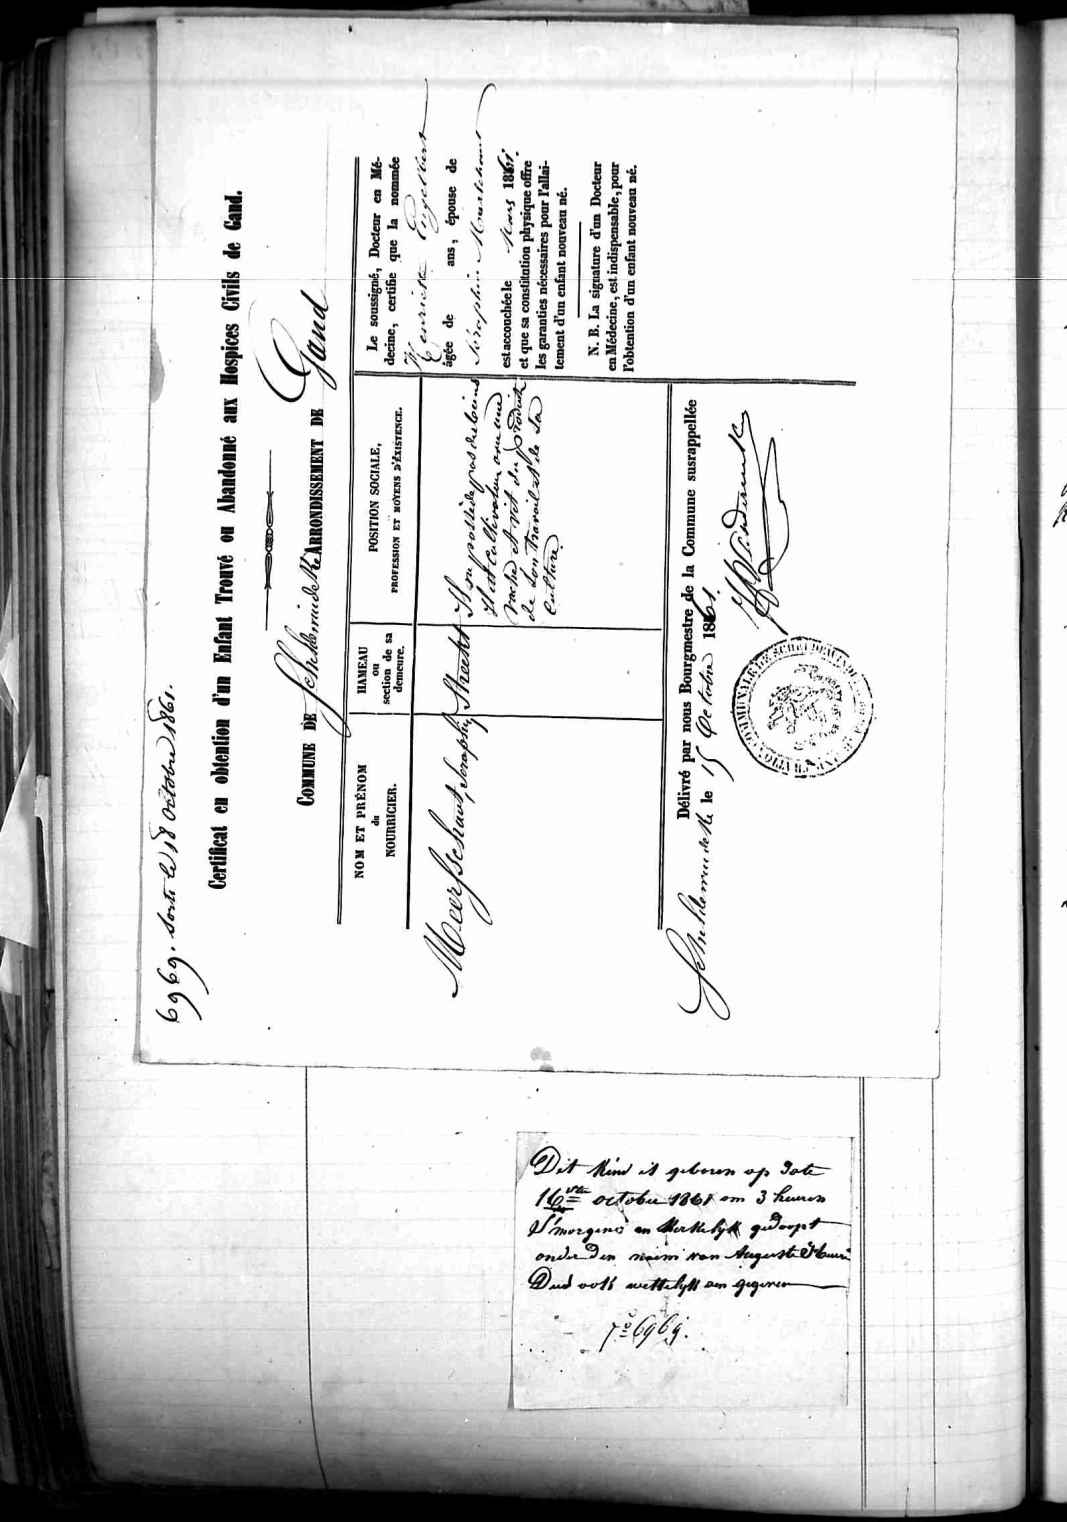 6969. Sorti le 18 Octobre 1861.
Certificat en obtention d'un Enfant Trouvé ou Abandonné aux Hospices Civils de Gand.
COMMUNE DE ARRONDISSEMENT DE Gand
NOM ET PRÉNOM
du
NOURRICIER.
HAMEAU
ou
section de sa
demeure.
POSITION SOCIALE,
PROFESSION ET MOYENS D'ÉXISTENCE.
Meersschaut, Seraphin
Il ne possède pas de biens
Il est cultivateur avec une
vache et vit du produit
de son travail et de sa
culture.
Le soussigné, Docteur en Mé-
decine, certifie que la nommée
Henriette
âgée de ans, épouse de
Séraphin
est accouchée le Mars 1861.
et que sa constitution physique offre
les garanties nécessaires pour l'allai-
tement d'un enfant nouveau né.
N. B. La signature d'un Docteur
en Médecine, est indispensable, pour
l'obtention d'un enfant nouveau né.
Délivré par nous Bourgmestre de la Commune susrappellée
le 15 Octobre 1861.
Dit kind is geboren op date
16 october 1861 om 3 heuren
S'morgens en kerkelijk gedoopt
onder den naem van Auguste
ook wettelyk aen gegeven
6969.